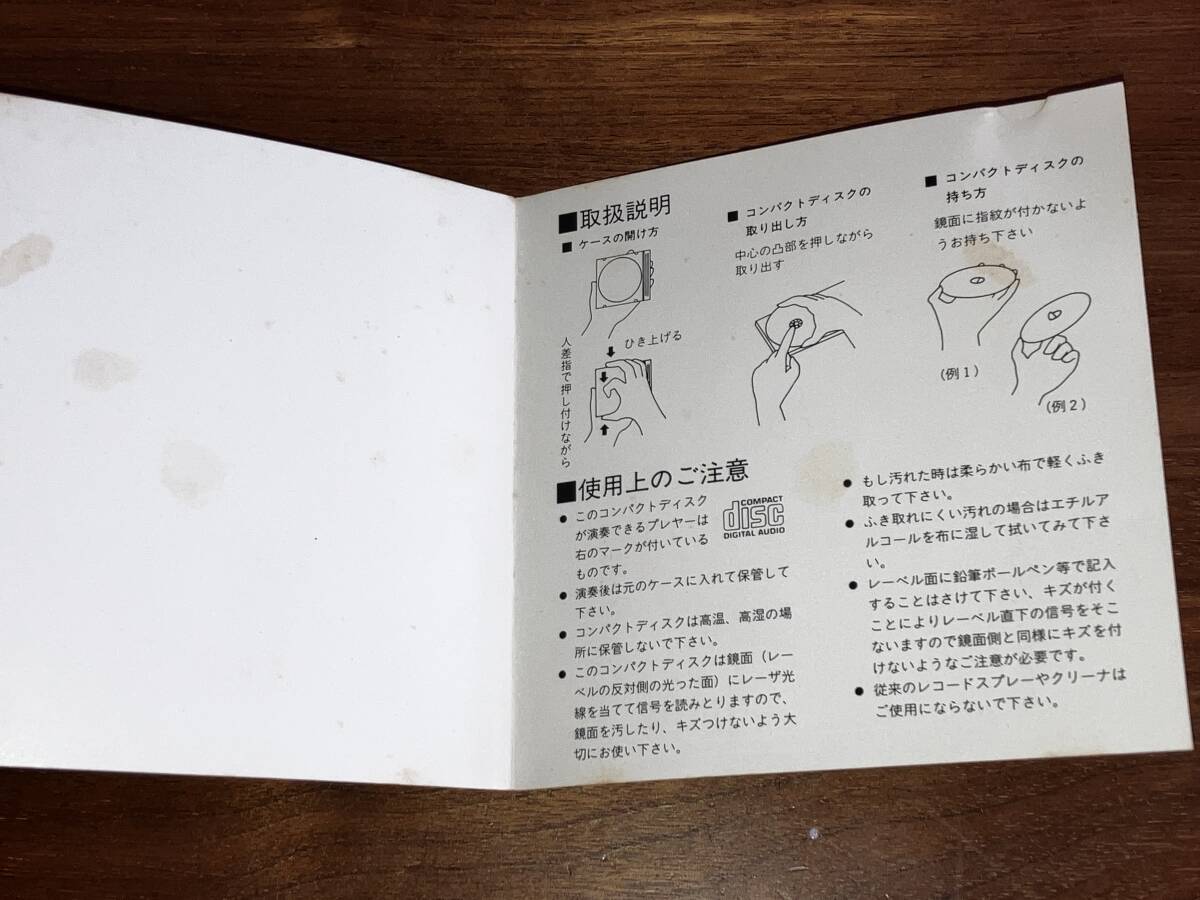 ■取扱説明
■ ケースの開け方
ひき上げる
人差指で押し付けながら
■ コンパクトディスクの
取り出し方
中心の凸部を押しながら
取り出す
■ コンパクトディスクの
持ち方
鏡面に指紋が付かないよ
うお持ち下さい
(例1)
(例2)
■使用上のご注意
● このコンパクトディスク
が演奏できるプレヤーは
右のマークが付いている
ものです。
COMPACT
disc
DIGITAL AUDIO
● 演奏後は元のケースに入れて保管して
下さい。
● コンパクトディスクは高温、高湿の場
所に保管しないで下さい。
● このコンパクトディスクは鏡面（レー
ベルの反対側の光った面）にレーザ光
線を当てて信号を読みとりますので、
鏡面を汚したり、キズつけないよう大
切にお使い下さい。
● もし汚れた時は柔らかい布で軽くふき
取って下さい。
● ふき取れにくい汚れの場合はエチルア
ルコールを布に湿して拭いてみて下さ
い。
● レーベル面に鉛筆ボールペン等で記入
することはさけて下さい、キズが付く
ことによりレーベル直下の信号をそこ
ないますので鏡面側と同様にキズを付
けないようなご注意が必要です。
● 従来のレコードスプレーやクリーナは
ご使用にならないで下さい。